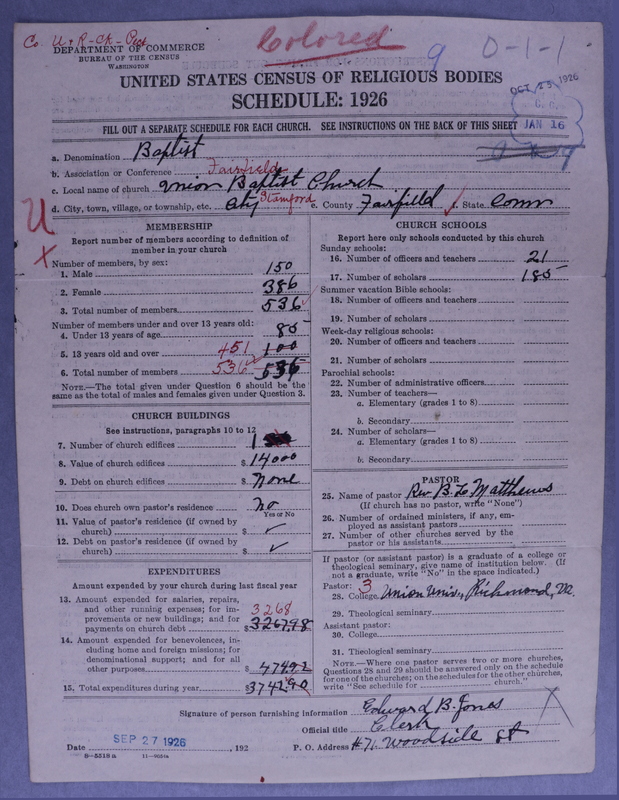 Co U+R-Ch-Pect
Colored 9 0-1-1
DEPARTMENT OF COMMERCE
BUREAU OF THE CENSUS
WASHINGTON
OCT 25 1926
UNITED STATES CENSUS OF RELIGIOUS BODIES
SCHEDULE: 1926
C. C.
JAN 16
FILL OUT A SEPARATE SCHEDULE FOR EACH CHURCH. SEE INSTRUCTIONS ON THE BACK OF THIS SHEET
a. Denomination Baptist
b. Association or Conference Fairfield
c. Local name of church Union Baptist Church
d. City, town, village, or township, etc. City Stamford e. County Fairfield f. State Conn
U
X
MEMBERSHIP
Report number of members according to definition of
member in your church
Number of members, by sex:
1. Male 150
2. Female 386
3. Total number of members 536
Number of members under and over 13 years old:
4. Under 13 years of age 85
5. 13 years old and over 451 100
6. Total number of members 536 536
NOTE.—The total given under Question 6 should be the
same as the total of males and females given under Question 3.
CHURCH BUILDINGS
See instructions, paragraphs 10 to 12
7. Number of church edifices 1
8. Value of church edifices $ 14000
9. Debt on church edifices $ None
10. Does church own pastor's residence No
Yes or No
11. Value of pastor's residence (if owned by
church) $ ✓
12. Debt on pastor's residence (if owned by
church) $ ✓
EXPENDITURES
Amount expended by your church during last fiscal year
13. Amount expended for salaries, repairs,
and other running expenses; for im-
provements or new buildings; and for 3268
payments on church debt $ 3267.98
14. Amount expended for benevolences, in-
cluding home and foreign missions; for
denominational support; and for all
other purposes $ 474.92
15. Total expenditures during year $ 3742.90
CHURCH SCHOOLS
Report here only schools conducted by this church
Sunday schools:
16. Number of officers and teachers 21
17. Number of scholars 185
Summer vacation Bible schools:
18. Number of officers and teachers
19. Number of scholars
Week-day religious schools:
20. Number of officers and teachers
21. Number of scholars
Parochial schools:
22. Number of administrative officers
23. Number of teachers—
a. Elementary (grades 1 to 8)
b. Secondary
24. Number of scholars—
a. Elementary (grades 1 to 8)
b. Secondary
PASTOR
25. Name of pastor Rev. B. L. Matthews
(If church has no pastor, write "None")
26. Number of ordained ministers, if any, em-
ployed as assistant pastors
27. Number of other churches served by the
pastor or his assistants
If pastor (or assistant pastor) is a graduate of a college or
theological seminary, give name of institution below. (If
not a graduate, write "No" in the space indicated.)
Pastor: 3
28. College Union Univ., Richmond, Va.
29. Theological seminary
Assistant pastor:
30. College
31. Theological seminary
NOTE.—Where one pastor serves two or more churches,
Questions 28 and 29 should be answered only on the schedule
for one of the churches; on the schedules for the other churches,
write "See schedule for church."
Signature of person furnishing information Edward B. Jones
Official title Clerk
Date SEP 27 1926, 192 P. O. Address #71 Woodside St
8—5518 a 11—9084a